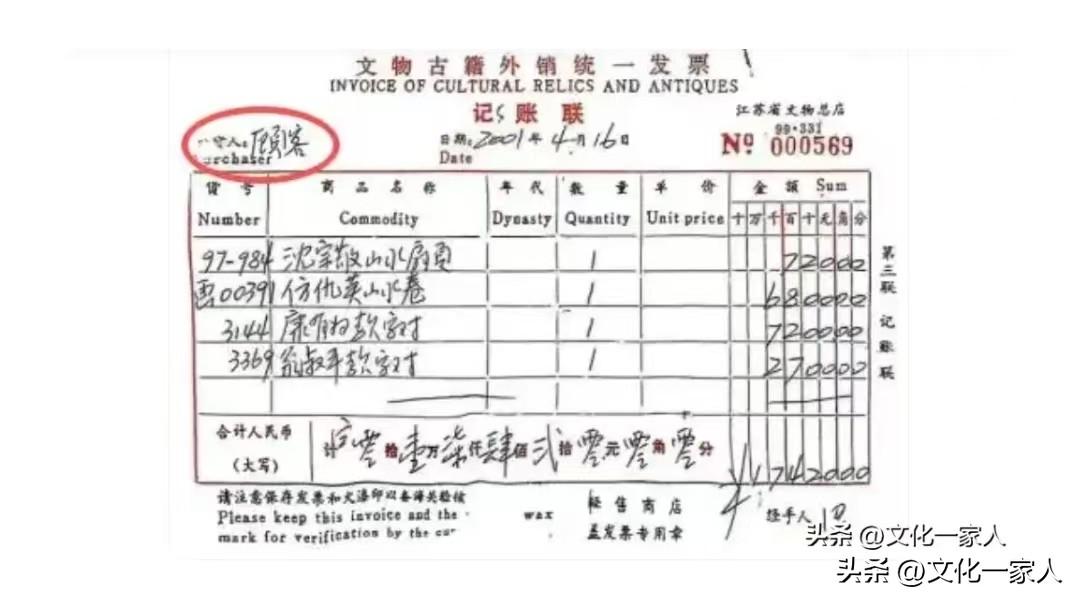 文物古籍外销统一发票
INVOICE OF CULTURAL RELICS AND ANTIQUES
记账联
江苏省文物总店
99·331
日期: 2001年4月16日
Date
Nº 000569
人: 顾客
Purchaser
货号 商品名称 年代 数量 单价 金额 Sum
Number Commodity Dynasty Quantity Unit price 十万千百十元角分
97-984 沈宗敬山水扇页 1 72000
画00391 仿仇英山水卷 1 680000
3144 康有为款字对 1 720000
3369 翁叔平款字对 1 270000
合计人民币
(大写)
零拾壹万柒仟肆佰弍拾零元零角零分
¥1742000
第三联 记账联
请注意保存发票和火漆印以备海关验核
Please keep this invoice and the wax
mark for verification by the cus
经售商店
盖发票专用章
经手人
头条 @文化一家人
头条 @文化一家人